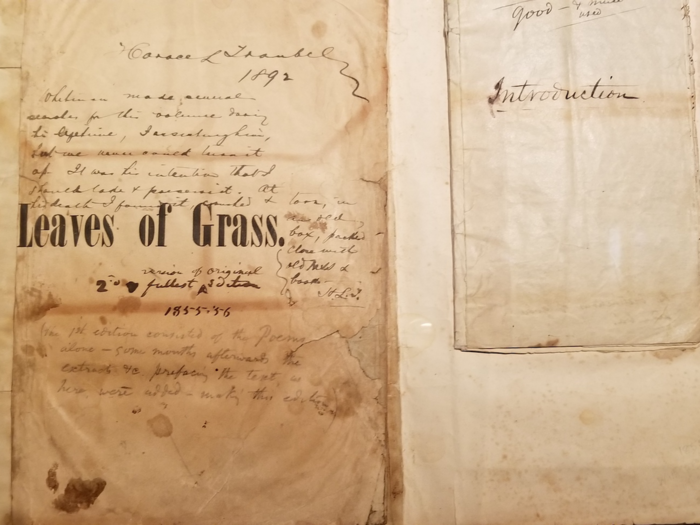 Horace L Traubel
1892
Whitman made several
searches for this volume during
his lifetime, I assisting him,
but we never could turn it
up. It was his intention that I
should take & possess it. At
his death I found it, crushed & torn, in
an old
box, packed
close with
old &
books.
H.L.T.
Leaves of Grass.
version of original
2nd & fullest Edition
1855-'56
The 1st edition consisted of the Poems
alone – some months afterwards the
extracts &c. prefacing the text, as
here, were added – making this edition
good – & must
used
Introduction